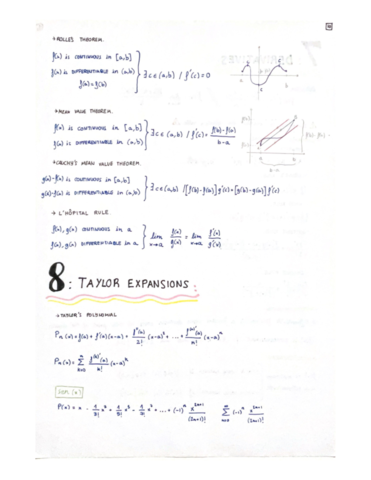 →ROLLE'S THEOREM.
f(x) is CONTINUOUS in [a,b]
f(x) is DIFFERENTIABLE in (a,b) } ∃ c ∈ (a,b) / f'(c)=0
f(a)=f(b)
→MEAN VALUE THEOREM.
f(x) is CONTINUOUS in [a,b]
f(x) is DIFFERENTIABLE in (a,b) } ∃ c ∈ (a,b) / f'(c) = (f(b)-f(a))/(b-a)
→CAUCHY'S MEAN VALUE THEOREM.
g(x)-f(x) is CONTINUOUS in [a,b]
g(x)-f(x) is DIFFERENTIABLE in (a,b) } ∃ c ∈ (a,b) / [f(b)-f(a)] g'(c) = [g(b)-g(a)] f'(c)
→ L'HÔPITAL RULE
f(x), g(x) CONTINUOUS in a
f(x), g(x) DIFFERENTIABLE in a } lim x→a f(x)/g(x) = lim x→a f'(x)/g'(x)
8: TAYLOR EXPANSIONS:
→TAYLOR'S POLINOMIAL
Pn(x) = f(a) + f'(a)(x-a) + f''(a)/2! (x-a)² + ... + f⁽ⁿ⁾(a)/n! (x-a)ⁿ
Pn(x) = Σ f⁽ᵏ⁾(a)/k! (x-a)ᵏ
sen(x)
P(x) = x - 1/3! x³ + 1/5! x⁵ - 1/7! x⁷ + ... + (-1)ⁿ x²ⁿ⁺¹/(2n+1)! Σ (-1)ⁿ x²ⁿ⁺¹/(2n+1)!